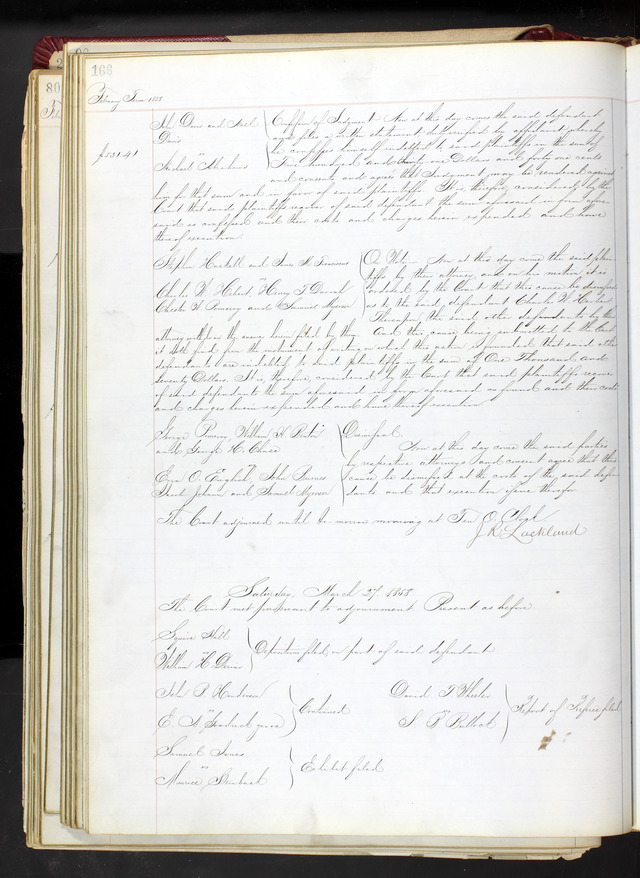 166
February Term 1858
Confession of Judgment Now at this day comes the said defendant
Davis and
Davis
and files in the statement and verified by affidavit whereby
he confesses himself indebted to said plaintiffs in the sum of
$531.41
Five hundred and thirty one Dollars and forty one cents
and consents and agrees that Judgment may be rendered against
him for that sum and in favor of said plaintiffs. It is therefore considered by the
Court that said plaintiffs recover of said defendant the sum aforesaid in form afore-
said so confessed and their costs and charges herein expended and have
thereof execution
Stephen Haskell and
On Motion Now at this day come the said plain-
tiffs by their attorney, and on his motion it is
Charles W. Hebert, Henry T.
ordered by the Court that this cause be dismissed
and Samuel Myron
as to the said defendant Charles W.
Thereupon the said other defendants by their
attorney withdraw the answer herein filed by them And this cause being submitted to the Court
it doth find from the instrument of writing on which this action is founded that said other
defendants are indebted to said plaintiffs in the sum of One Thousand and
Seventy Dollars. It is therefore considered by the Court that said plaintiffs recover
of said defendants the sum aforesaid in form aforesaid so found and their costs
and charges herein expended and have thereof execution
George Pomeroy, William H.
and George H. Chase
Dismissed
Now at this day come the said parties
by respective attorneys and consent agree that this
Ezra O. English, John
cause be dismissed at the costs of the said defen-
and Samuel Myron
dants and that execution issue therefor
The Court adjourned until to-morrow morning at Ten O,Clock
J R Lackland
Saturday, March 27 1858
The Court met pursuant to adjournment Present as before
Squire Hill
vs
William H Davis
Depositions filed on part of said defendant
John P. Henderson
vs
E. A.
Continued
David T Wheeler
vs
S. P. Bullock
Report of Referee filed
Samuel Jones
vs
Maurice Steinback
Exhibit filed